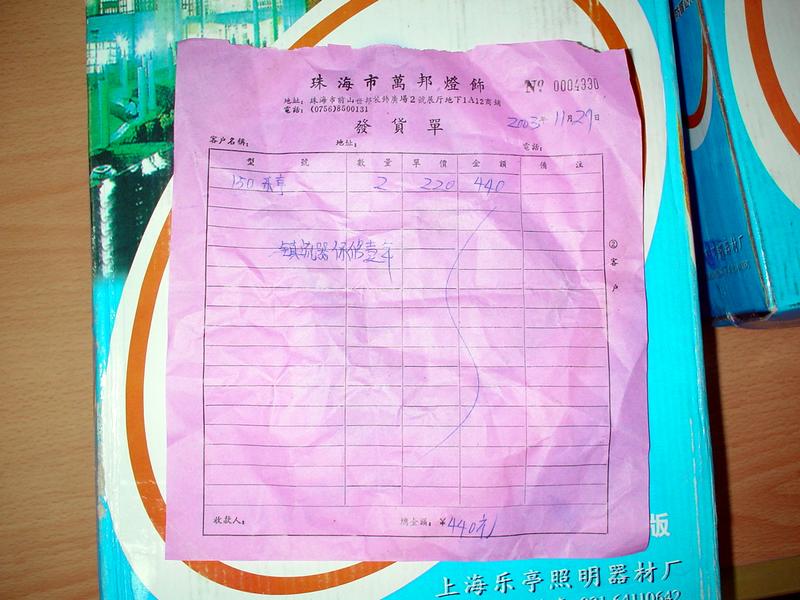 珠海市萬邦燈飾
№ 0004330
地址：珠海市前山世邦家飾廣場2號展厅地下1A12商鋪
電話：(0756)8500131
發貨單
2003年11月29日
客户名稱： 地址： 電話：
型號 數量 單價 金額 備注
150 乐亭 2 220 440
镇流器保修壹年
②客户
收款人： 總金額：¥440元
版
上海乐亭照明器材厂
021-64110642